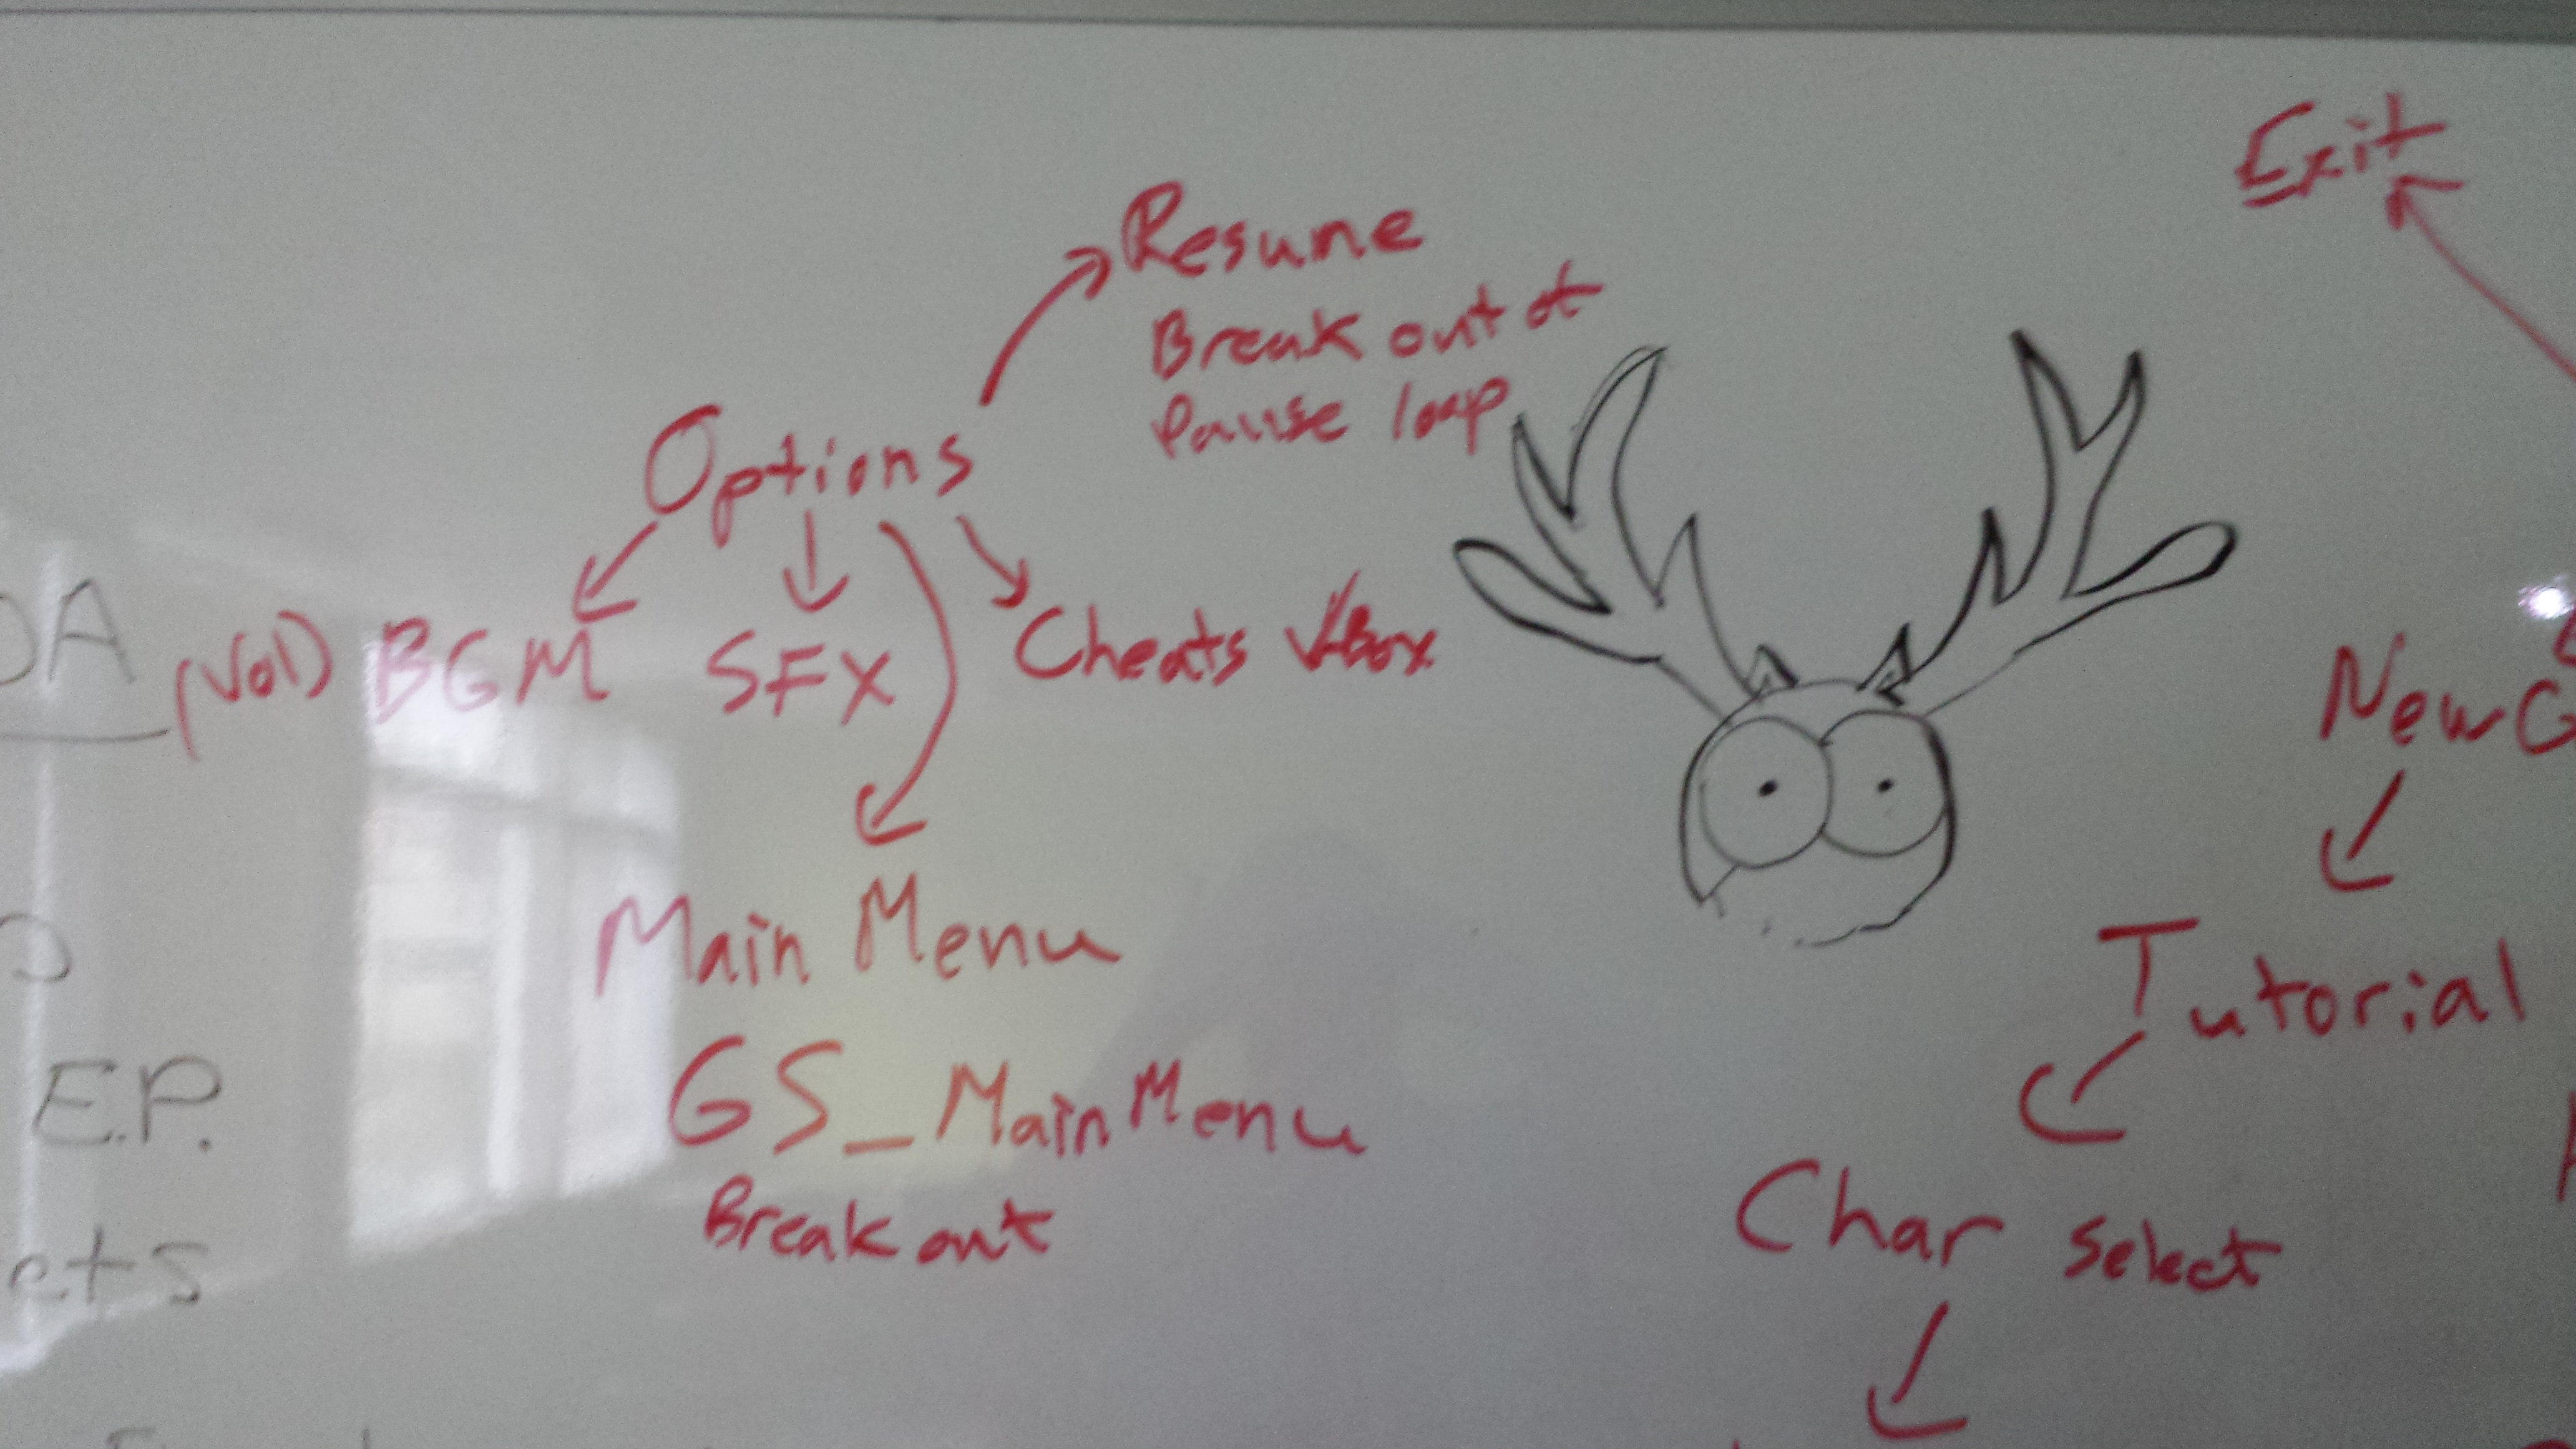 Exit
Resume
Break out of
Pause loop
Options
(Vol) BGM SFX Cheats ✓Box
Main Menu
GS_MainMenu
Break out
New G
Tutorial
Char select
DA
E.P.
ets